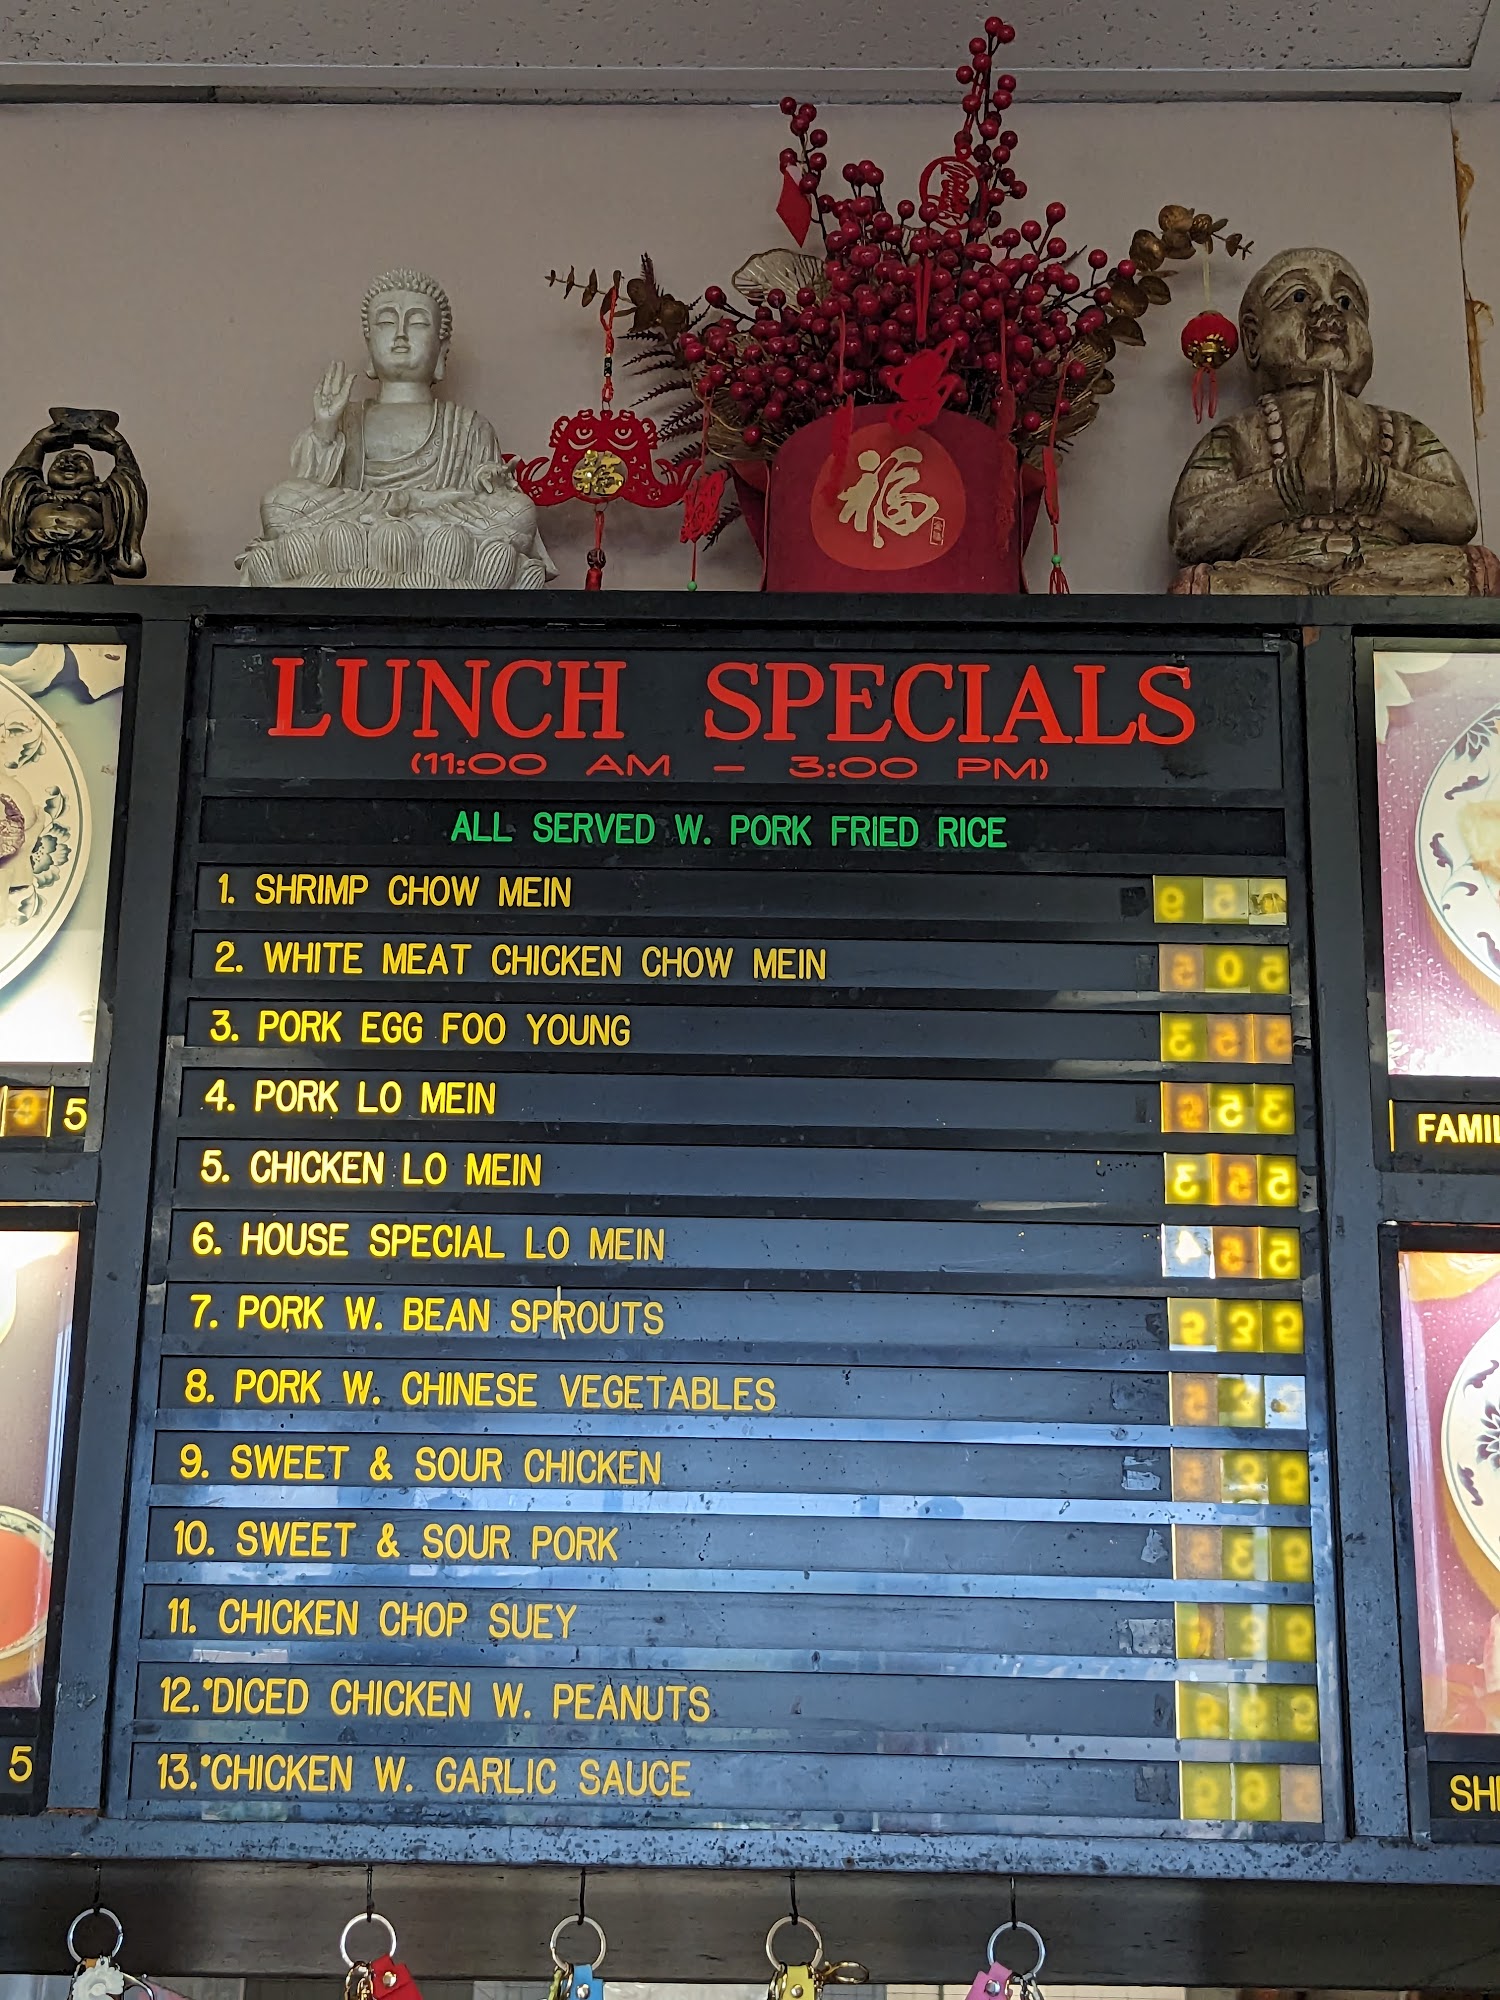 福
福
LUNCH SPECIALS
(11:00 AM – 3:00 PM)
ALL SERVED W. PORK FRIED RICE
1. SHRIMP CHOW MEIN
2. WHITE MEAT CHICKEN CHOW MEIN
3. PORK EGG FOO YOUNG
4. PORK LO MEIN
5. CHICKEN LO MEIN
6. HOUSE SPECIAL LO MEIN
7. PORK W. BEAN SPROUTS
8. PORK W. CHINESE VEGETABLES
9. SWEET & SOUR CHICKEN
10. SWEET & SOUR PORK
11. CHICKEN CHOP SUEY
12.*DICED CHICKEN W. PEANUTS
13.*CHICKEN W. GARLIC SAUCE
5
5
FAMI
SH